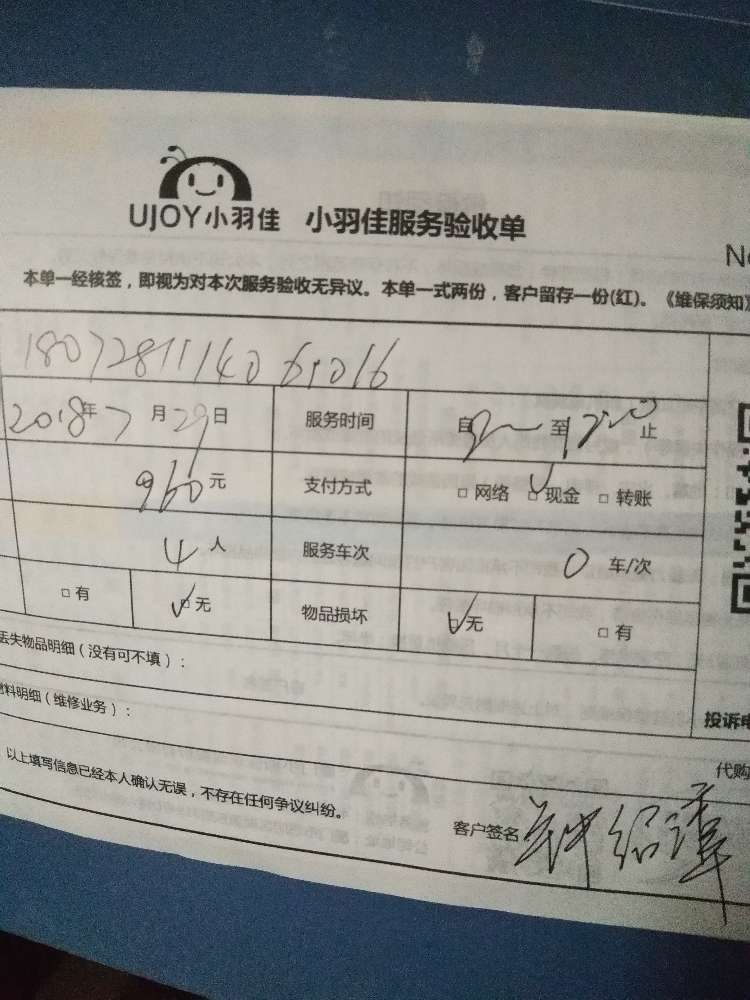 UJOY小羽佳 小羽佳服务验收单
No
本单一经核签，即视为对本次服务验收无异议。本单一式两份，客户留存一份(红)。《维保须知》
18072811140
2018年7月29日 服务时间 自 至 止
960元 支付方式 □ 网络 □ 现金 □ 转账
4人 服务车次 0 车/次
□ 有 □ 无 物品损坏 □ 无 □ 有
丢失物品明细（没有可不填）：
材料明细（维修业务）：
投诉电
代购
以上填写信息已经本人确认无误，不存在任何争议纠纷。
客户签名